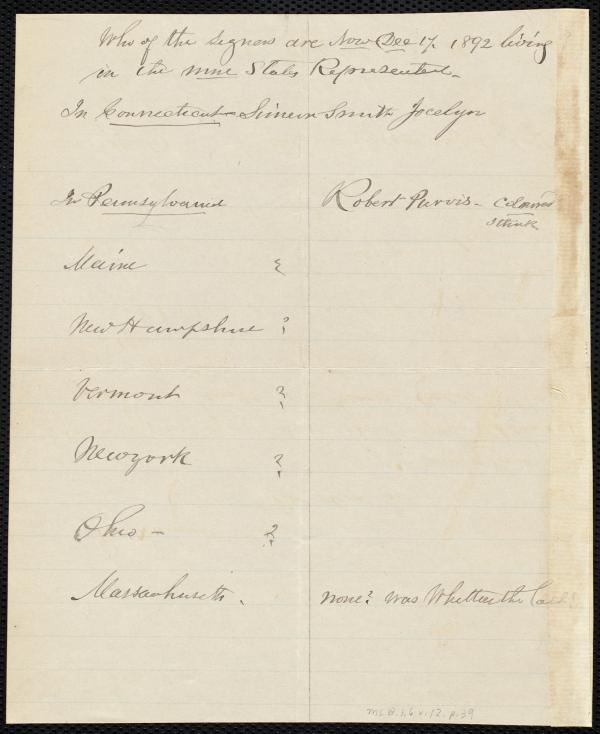 Who of the signers are Now Dec 17. 1892 living
in the nine States Represented.
In Connecticut - Simeon Smith Jocelyn
In Pennsylvania Robert Purvis - Colored
I think
Maine ?
New Hampshire ?
Vermont ?
New york ?
Ohio - ?
Massachusetts. none? was Whittier the last?
Ms.B.1.6 v.12, p.39